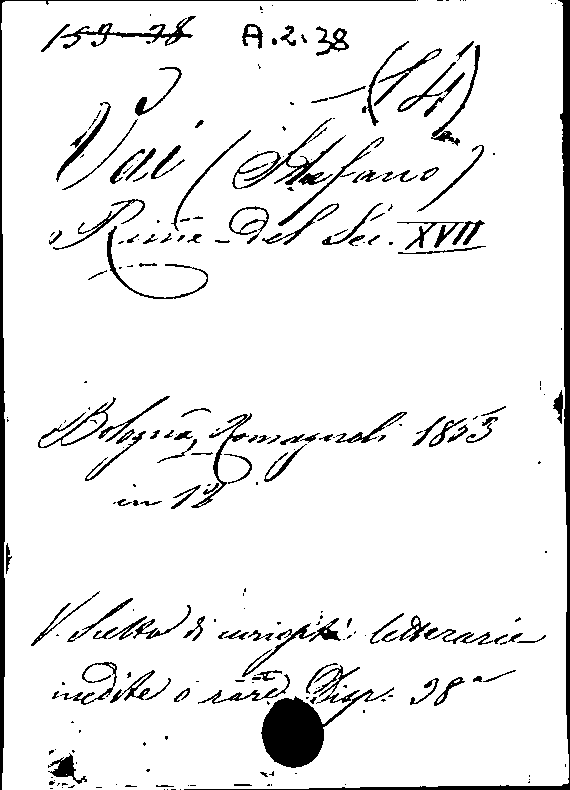 153-38 A.2.38
(14)
Vai (Stefano)
Rime del Sec. XVII
Bologna, Romagnoli 1853
in 12
V. Scelta di curiosità letterarie
inedite o rare Disp. 38ª